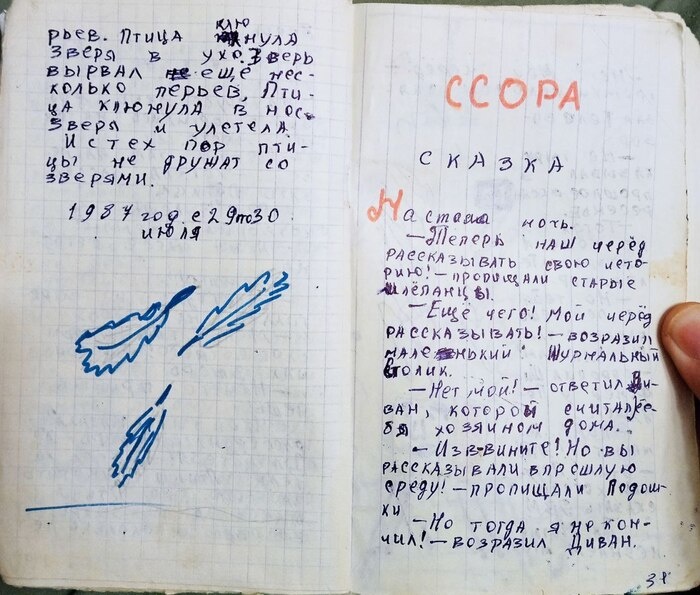 рьев. Птица клюнула
зверя в ухо. Зверь
вырвал ещё нес-
колько перьев, Пти-
ца клюнула в нос
зверя и улетела
И с тех пор пти-
цы не дружат со
зверями.
1987 год. с 29 по 30
июля
ССОРА
СКАЗКА
Настала ночь.
—Теперь наш черёд
рассказывать свою исто-
рию!—пропищали старые
шлёпанцы.
—Ещё чего! Мой черёд
рассказывать!—возразил
маленький Журнальный
Столик.
—Нет мой!—ответил Ди-
ван, которой считал се-
бя хозяином дома.
—Изввините! Но вы
рассказывали в прошлую
среду!—пропищали Подош-
ки
—Но тогда я не кон-
чил!—возразил Диван.